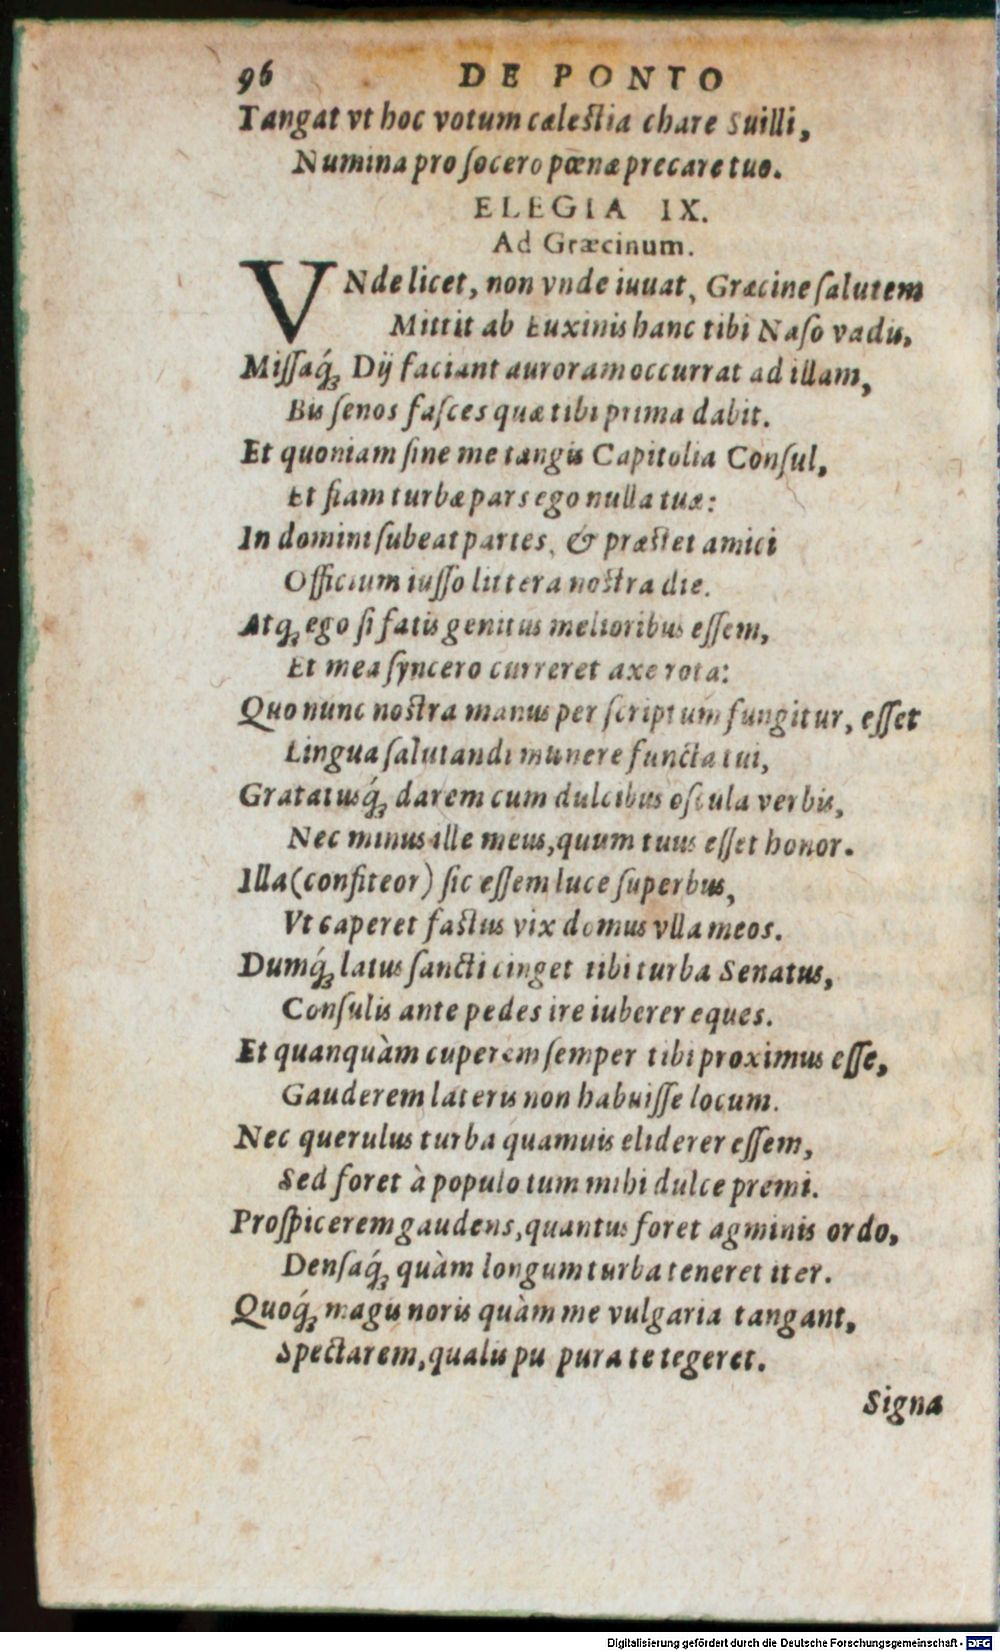 96 DE PONTO
Tangat vt hoc votum cælestia chare Suilli,
Numina pro socero pœnæ precare tuo.
ELEGIA IX.
Ad Græcinum.
VNde licet, non vnde iuuat, Græcine salutem
Mittit ab Euxinis hanc tibi Naso vadis,
Missaq́; Dij faciant auroram occurrat ad illam,
Bis senos fasces quæ tibi prima dabit.
Et quoniam sine me tangis Capitolia Consul,
Et fiam turbæ pars ego nulla tuæ:
In domini subeat partes, & præstet amici
Officium iusso littera nostra die.
Atq; ego si fatis genitus melioribus essem,
Et mea syncero curreret axe rota:
Quo nunc nostra manus per scriptum fungitur, esset
Lingua salutandi munere functa tui,
Gratatusq́; darem cum dulcibus oscula verbis,
Nec minus ille meus, quum tuus esset honor.
Illa (confiteor) sic essem luce superbus,
Vt caperet fastus vix domus vlla meos.
Dumq́; latus sancti cinget tibi turba Senatus,
Consulis ante pedes ire iuberer eques.
Et quanquàm cuperem semper tibi proximus esse,
Gauderem lateris non habuisse locum.
Nec querulus turba quamuis eliderer essem,
Sed foret à populo tum mihi dulce premi.
Prospicerem gaudens, quantus foret agminis ordo,
Densaq́; quàm longum turba teneret iter.
Quoq́; magis noris quàm me vulgaria tangant,
Spectarem, qualis pu pura te tegeret.
Signa
Digitalisierung gefördert durch die Deutsche Forschungsgemeinschaft - DFG